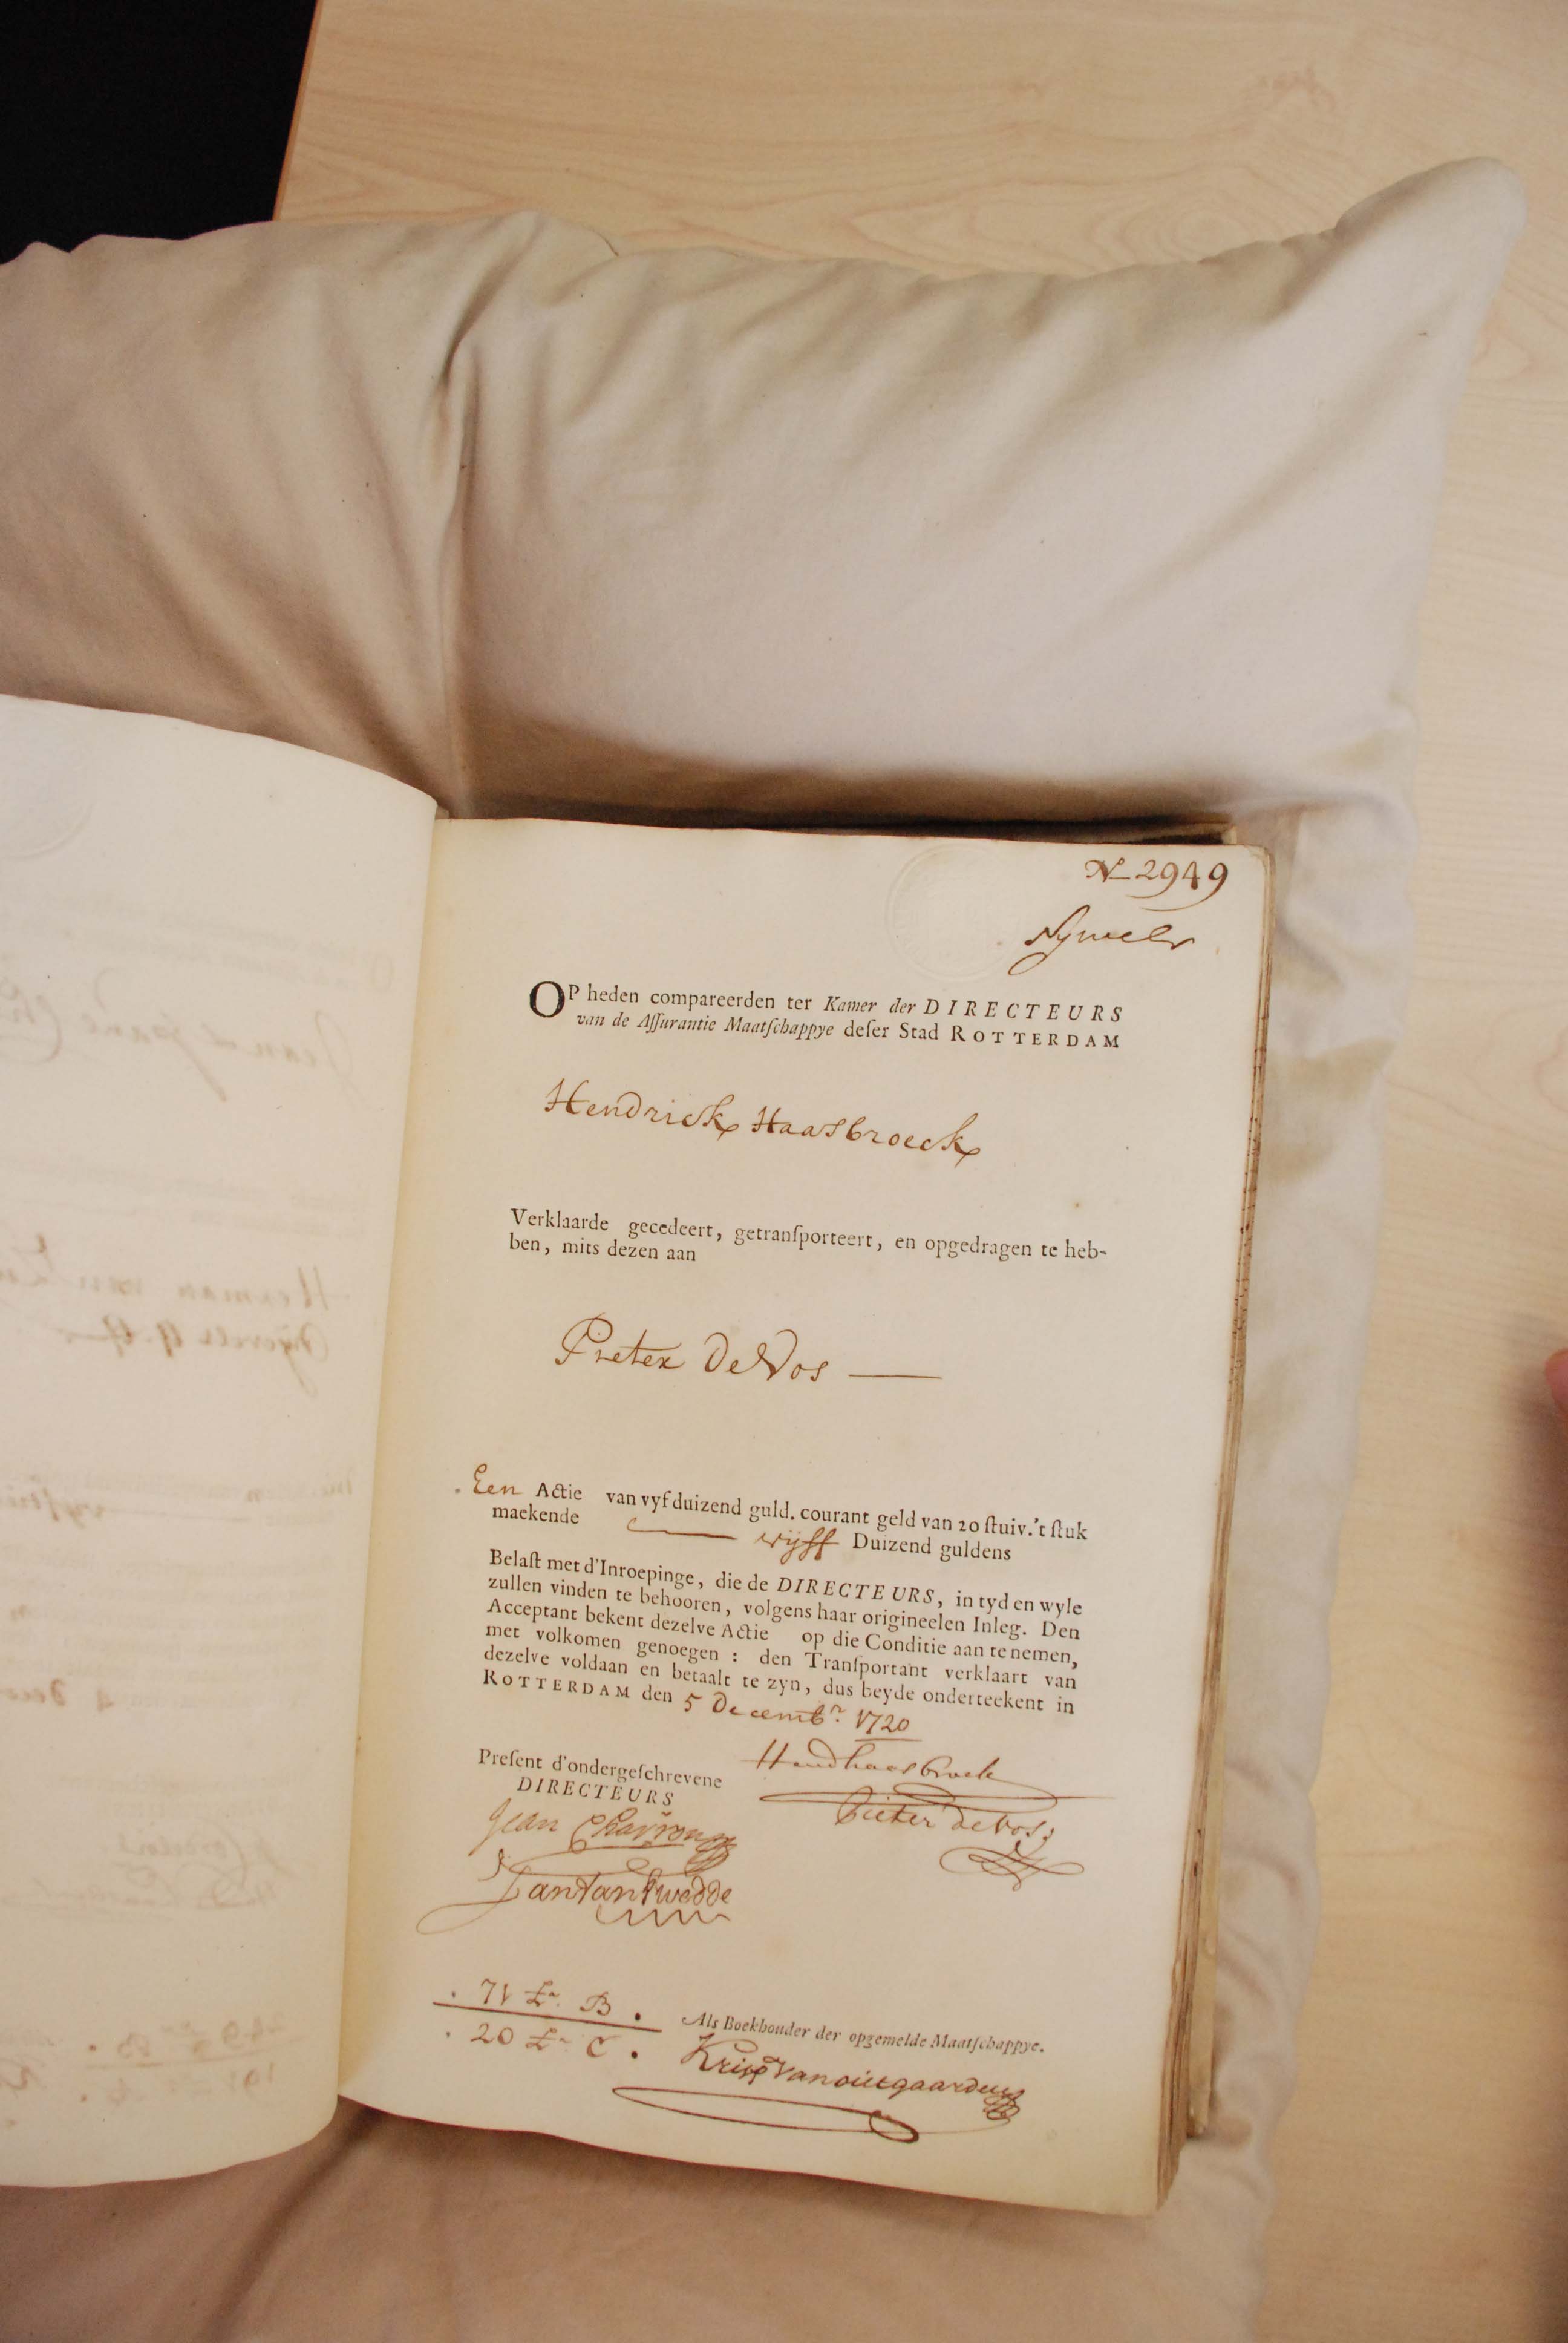 N 2949
OP heden compareerden ter Kamer der DIRECTEURS
van de Aſſurantie Maatſchappye deſer Stad ROTTERDAM
Hendrick Haasbroeck
Verklaarde gecedeert, getranſporteert, en opgedragen te heb-
ben, mits dezen aan
Pieter De Vos
Een Actie van vyf duizend guld. courant geld van 20 ſtuiv. 't ſtuk
maekende vijff Duizend guldens
Belaſt met d'Inroepinge, die de DIRECTEURS, in tyd en wyle
zullen vinden te behooren, volgens haar origineelen Inleg. Den
Acceptant bekent dezelve Actie op die Conditie aan te nemen,
met volkomen genoegen : den Tranſportant verklaart van
dezelve voldaan en betaalt te zyn, dus beyde onderteekent in
ROTTERDAM den 5 Decembr. 1720
Preſent d'ondergeſchrevene
DIRECTEURS
Hendhaasbroek
Pieter de Vos
Jean Charron
71 Lr. B.
20 Lr. C.
Als Boekhouder der opgemelde Maatſchappye.